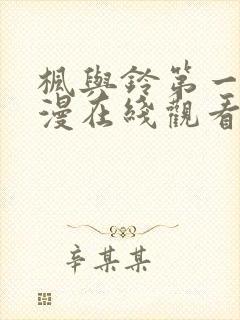 楓與鈴第一
漫在綫觀看
辛某某